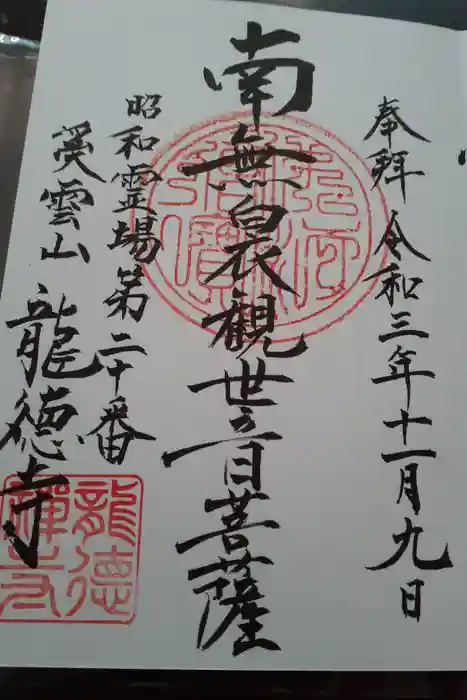 奉拝 令和三年十一月九日
南無白衣觀世音菩薩
昭和霊場第二十番
雲山 龍徳寺
龍德禪寺